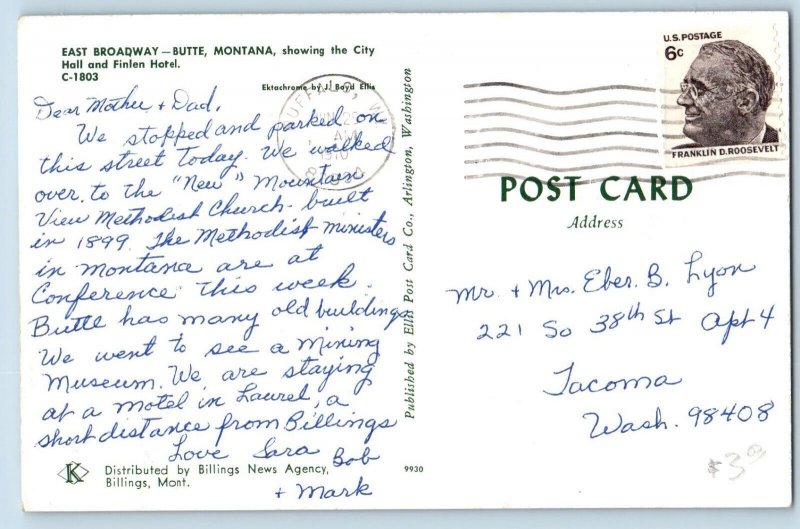 EAST BROADWAY — BUTTE, MONTANA, showing the City
Hall and Finlen Hotel.
C-1803
Ektachrome by J. Boyd Ellis
Dear Mother + Dad,
We stopped and parked on
this street today. We walked
over to the "New" Mountain
View Methodist Church - built
in 1899. The Methodist ministers
in Montana are at
Conference this week.
Butte has many old buildings
We went to see a Mining
Museum. We are staying
at a motel in Laurel, a
short distance from Billings
Love Sara
Bob
+ Mark
K
Distributed by Billings News Agency,
Billings, Mont.
9930
Published by Ellis Post Card Co., Arlington, Washington
1970
U.S. POSTAGE
6c
FRANKLIN D. ROOSEVELT
POST CARD
Address
Mr. + Mrs. Eber. B. Lyon
221 So 38th St Apt 4
Tacoma
Wash. 98408
$3